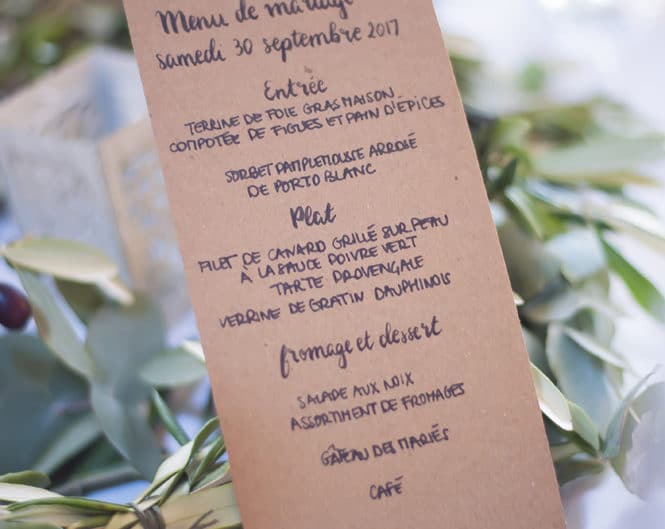 Menu de mariage
samedi 30 septembre 2017
Entrée
TERRINE DE FOIE GRAS MAISON
COMPOTÉE DE FIGUES ET PAIN D'ÉPICES
SORBET PAMPLEMOUSSE ARROSÉ
DE PORTO BLANC
Plat
FILET DE CANARD GRILLÉ SUR PEAU
À LA SAUCE POIVRE VERT
TARTE PROVENÇALE
VERRINE DE GRATIN DAUPHINOIS
fromage et dessert
SALADE AUX NOIX
ASSORTIMENT DE FROMAGES
GÂTEAU DES MARIÉS
CAFÉ